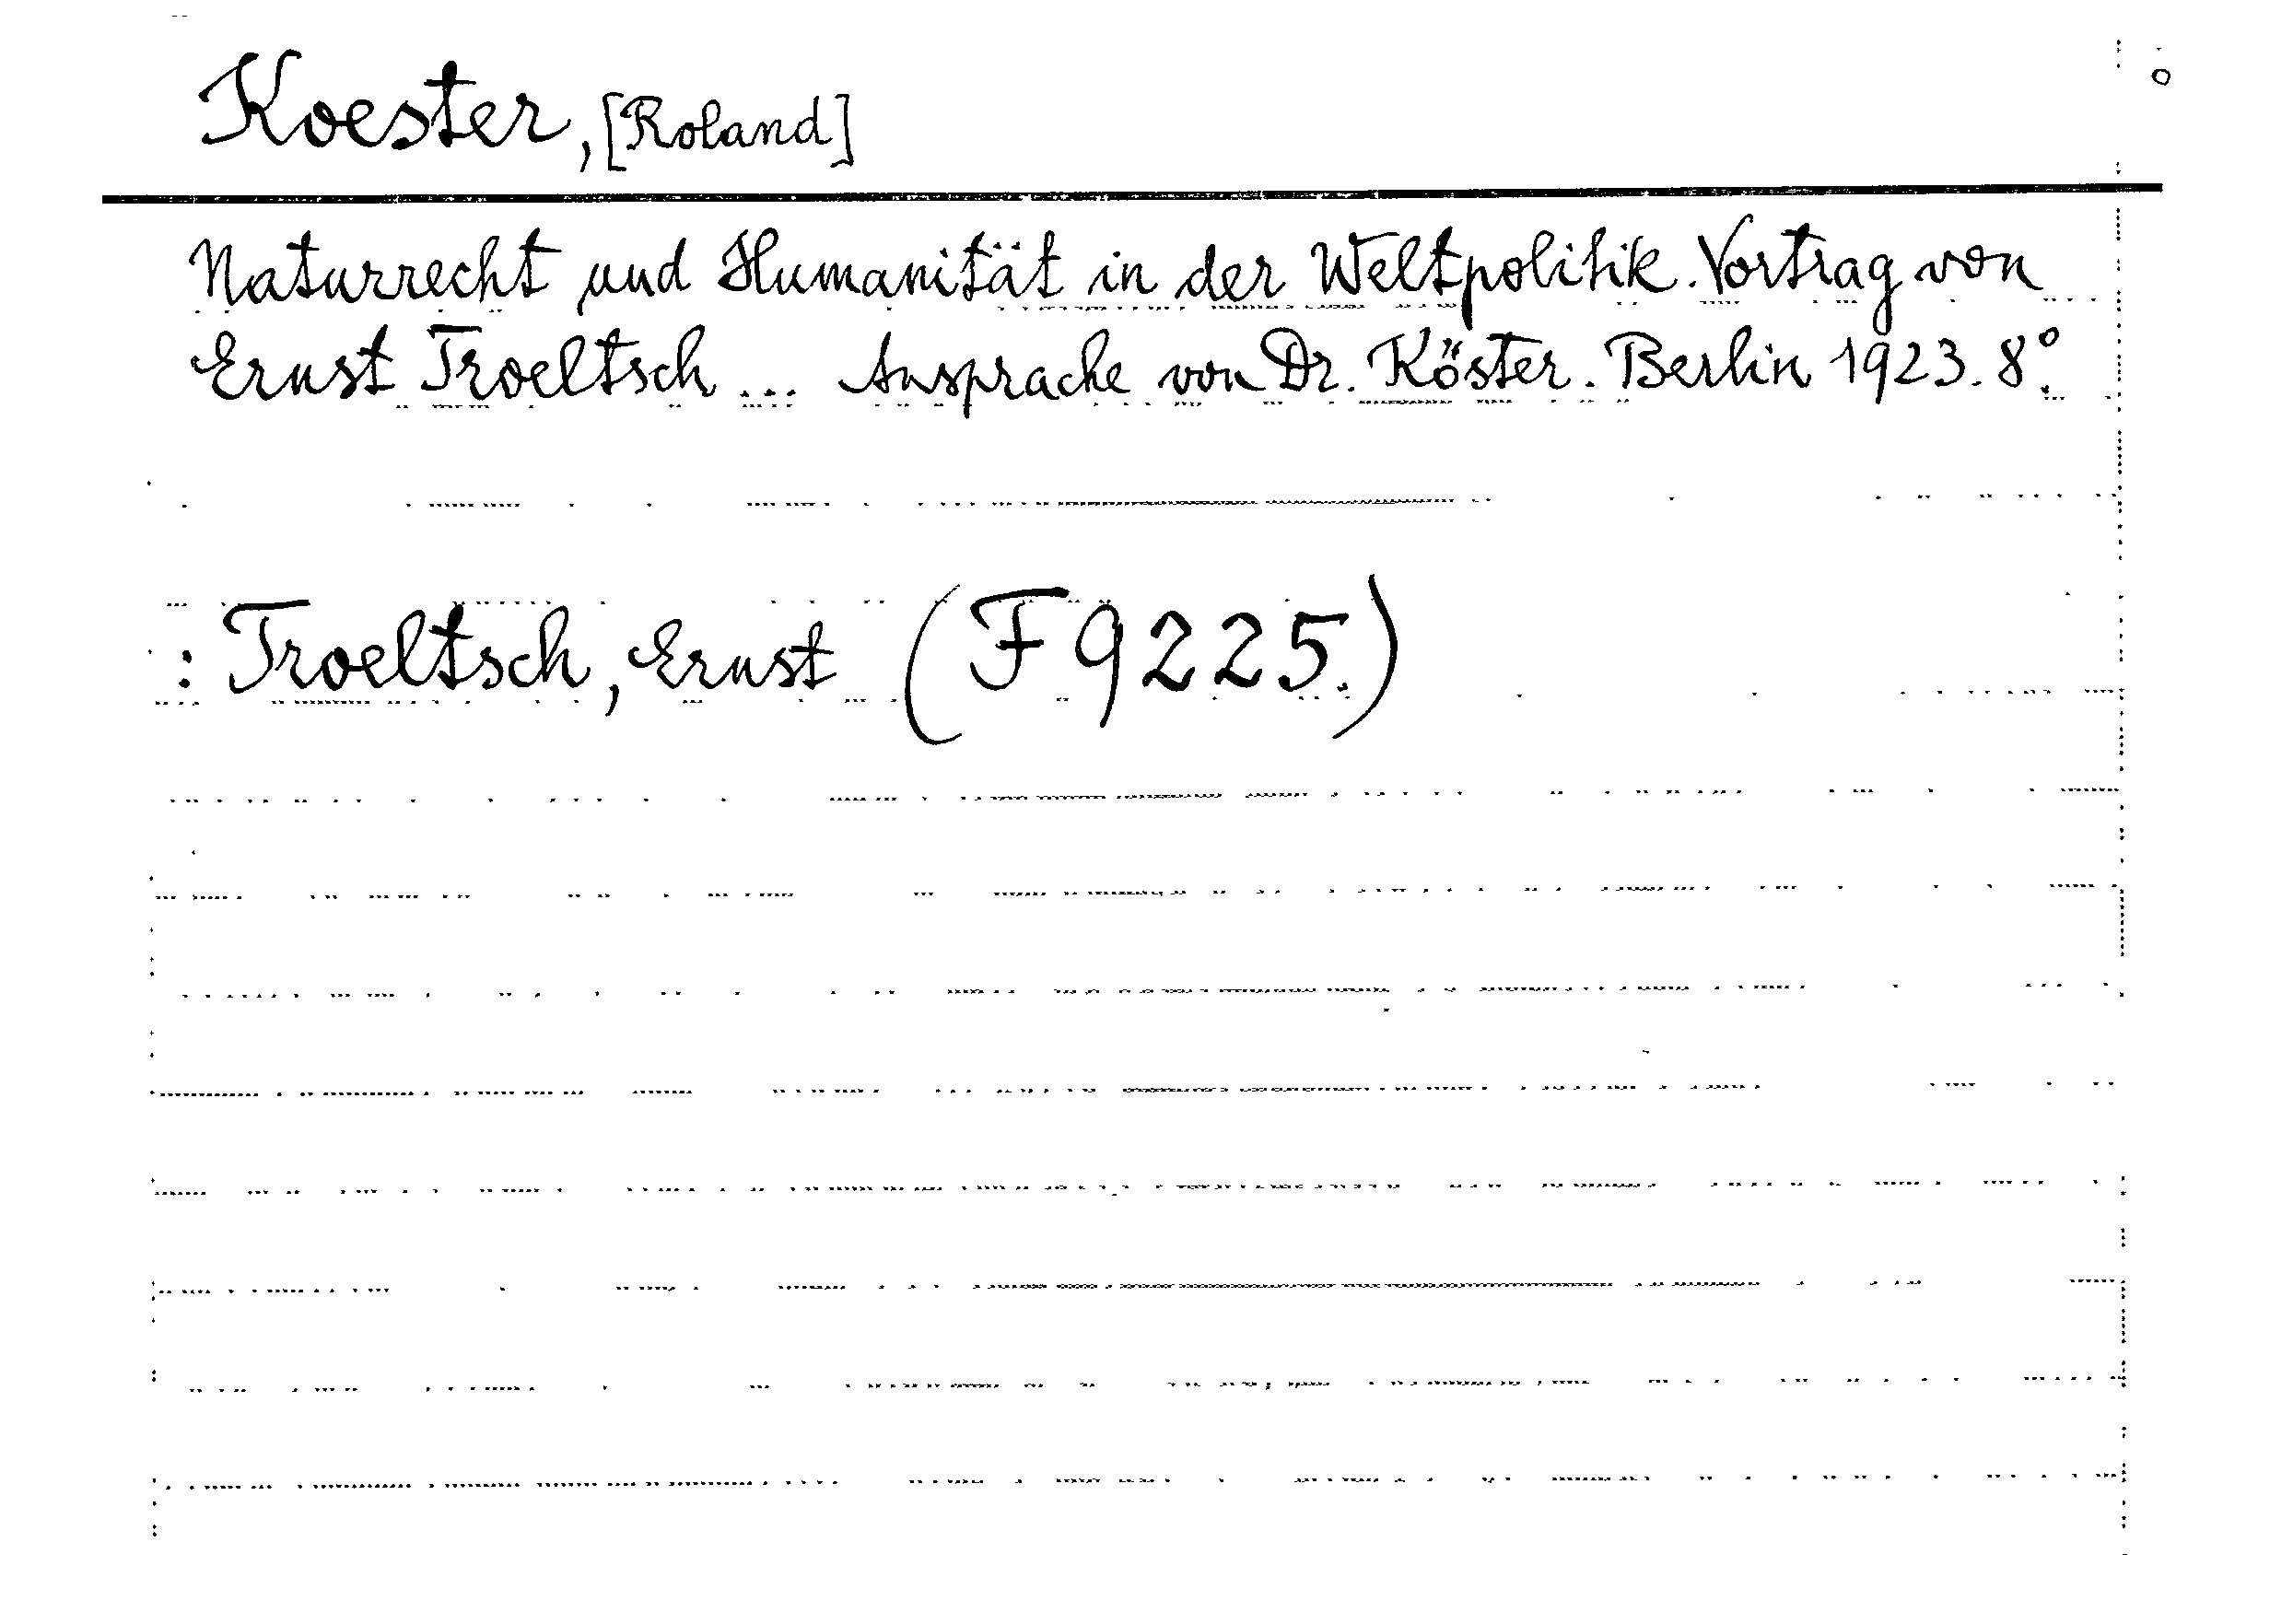 Koester, [Roland]
Naturrecht und Humanität in der Weltpolitik. Vortrag von
Ernst Troeltsch ... Ansprache von Dr. Köster. Berlin 1923. 8°.
: Troeltsch, Ernst (F 9225.)